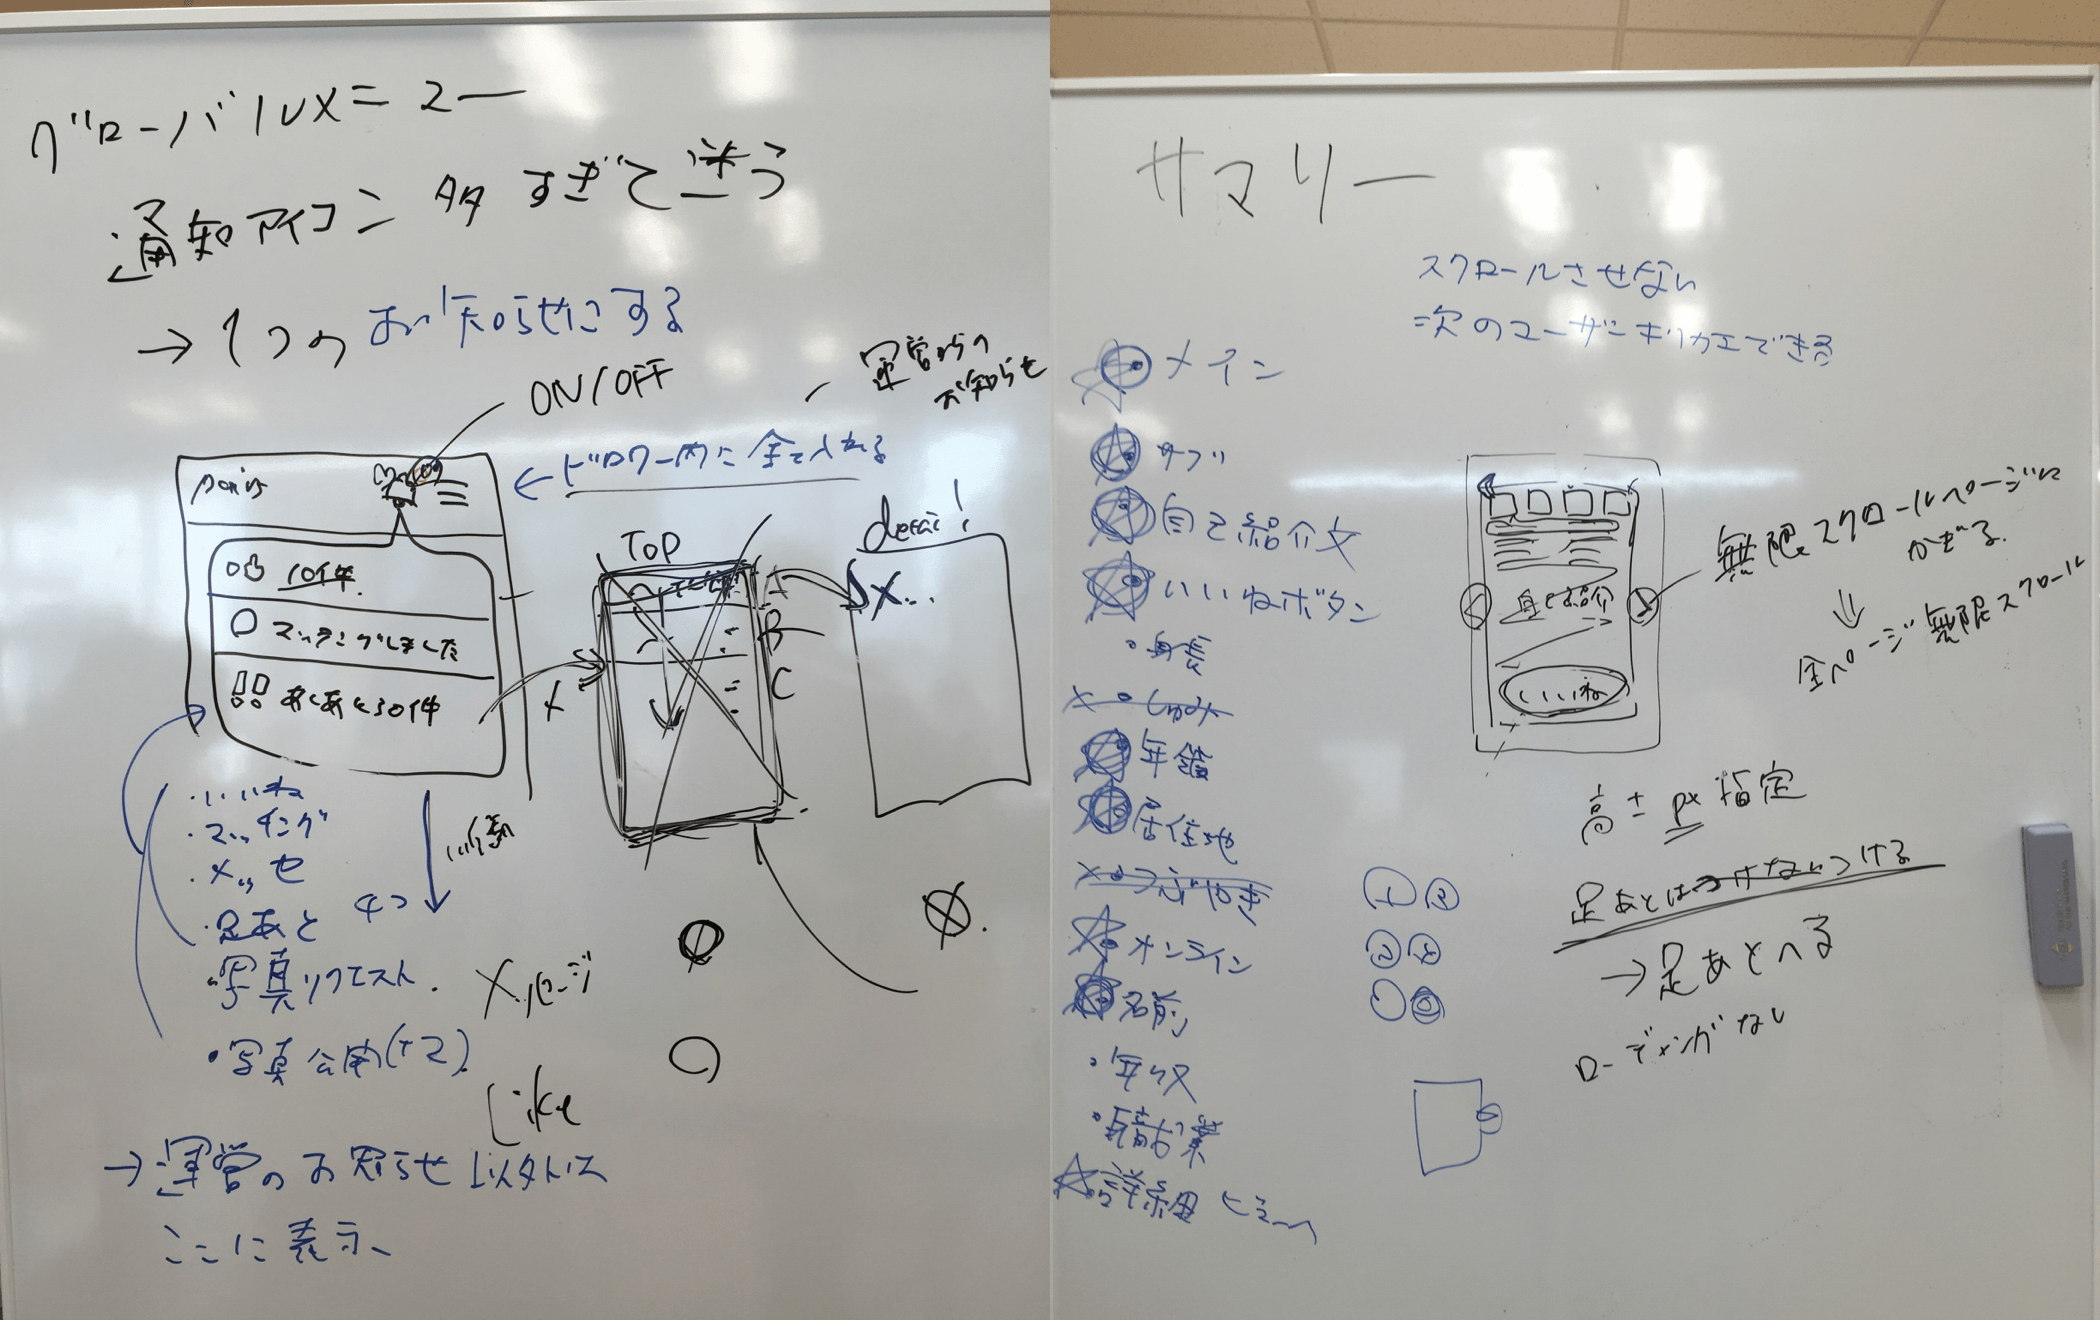 グローバルメニュー
通知アイコン多すぎて迷う
→1つのお知らせにする
ON/OFF
運営からの
お知らせ
←ドロワー内に全て入れる
pairs
10件
マッチングしました
あしあと30件
TOP
A
B
C
detail
X...
・いいね
・マッチング
・メッセ
・足あと
4つ
・写真リクエスト
・写真公開
メッセージ
Like
→運営のお知らせ以外は
ここに表示
サマリー
スクロールさせない
次のユーザーにきりかえできる
メイン
サブ
自己紹介文
いいねボタン
・身長
×・しゅみ
年齢
居住地
×・つぶやき
オンライン
名前
・年収
・職業
詳細ビューへ
自己紹介
いいね
無限スクロールページに
かぎる
⇓
全ページ無限スクロール
高さpx指定
足あとはつけないつける
→足あとへる
ローディングなし